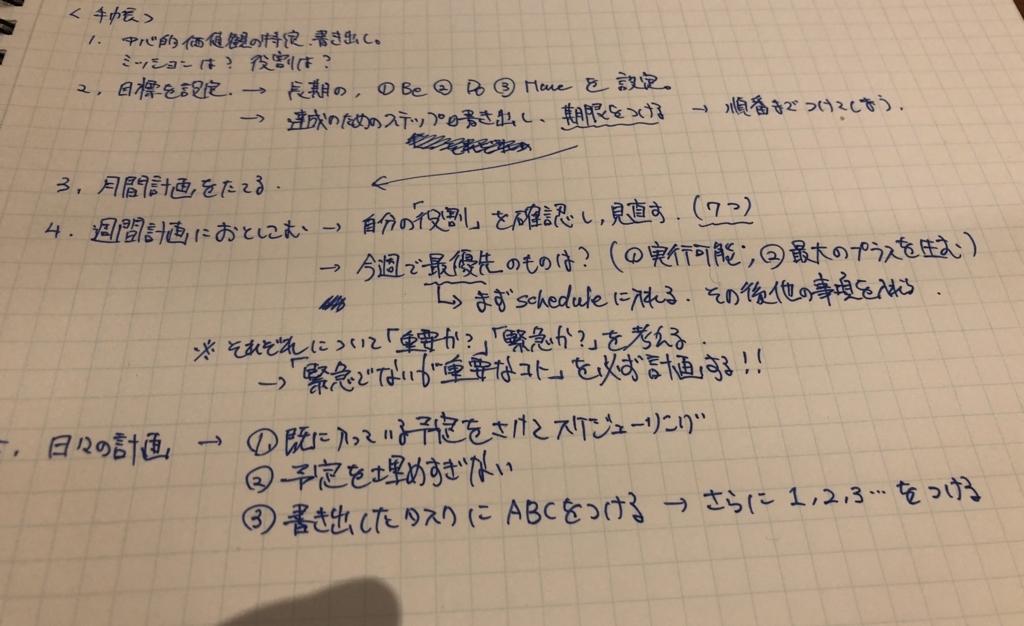 <手帳>
1. 中心的価値観の特定、書き出し。
ミッションは? 役割は?
2. 目標を設定. → 長期の, ①Be ② Do ③ Have を設定。
→ 達成のためのステップを書き出し、期限をつける → 順番までつけてしまう.
3. 月間計画をたてる.
4. 週間計画におとしこむ → 自分の「役割」を確認し, 見直す. (7つ)
→ 今週で最優先のものは? (①実行可能; ②最大のプラスを生む)
↳ まずscheduleに入れる. その後他の事項を入れる.
※ それぞれについて「重要か?」「緊急か?」を考える.
→「緊急でないが重要なコト」を必ず計画する!!
日々の計画 → ①既に入っている予定をさけてスケジューリング
②予定を埋めすぎない
③書き出したタスクに ABCをつける → さらに 1, 2, 3… をつける